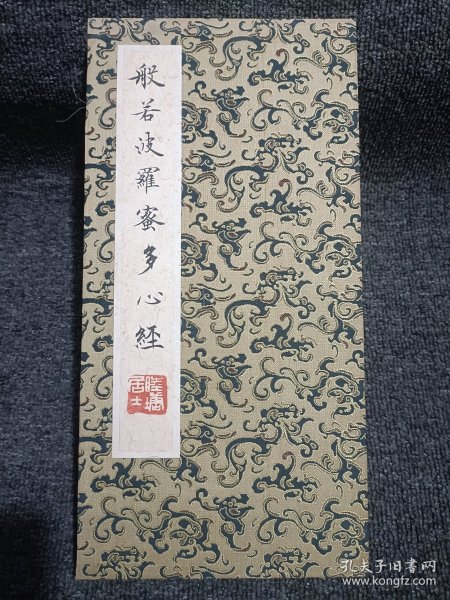 般若波羅蜜多心經
居士
孔夫子旧书网
www.kongfz.com